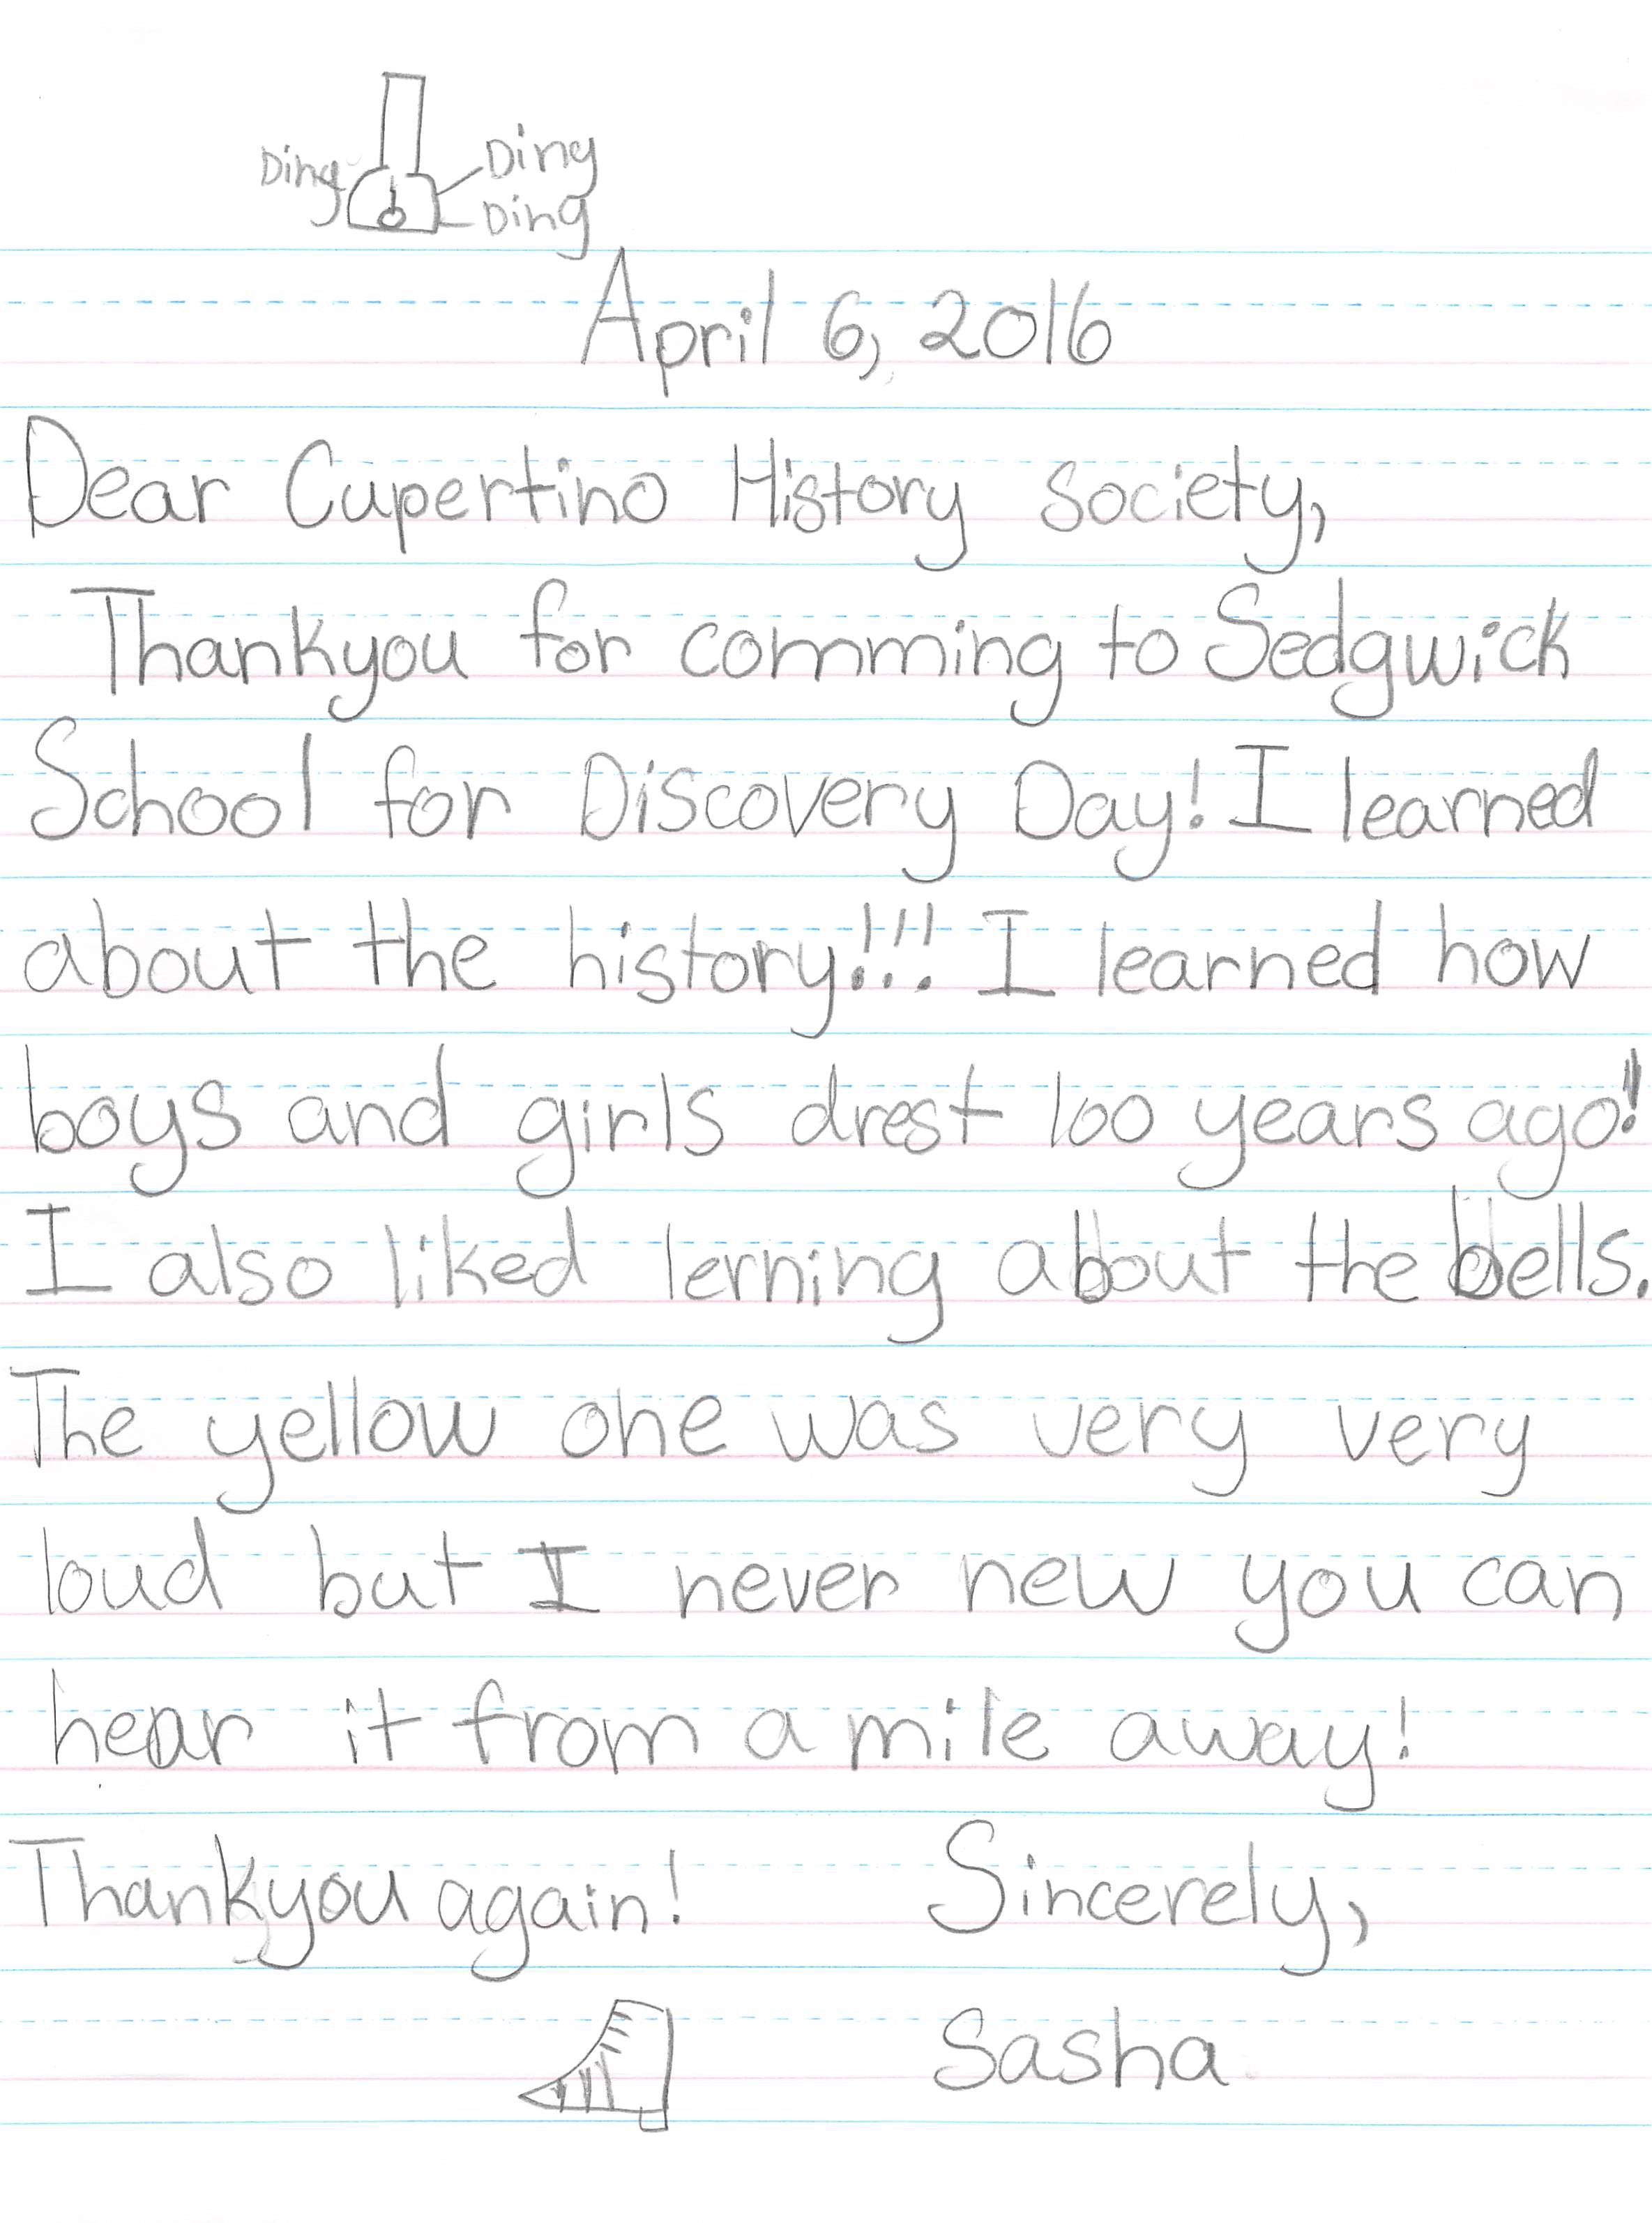 Ding Ding
Ding
April 6, 2016
Dear Cupertino History Society,
Thankyou for comming to Sedgwick
School for Discovery Day! I learned
about the history!!! I learned how
boys and girls drest 100 years ago!!
I also liked lerning about the bells.
The yellow one was very very
loud but I never new you can
hear it from a mile away!
Thankyou again! Sincerely,
Sasha